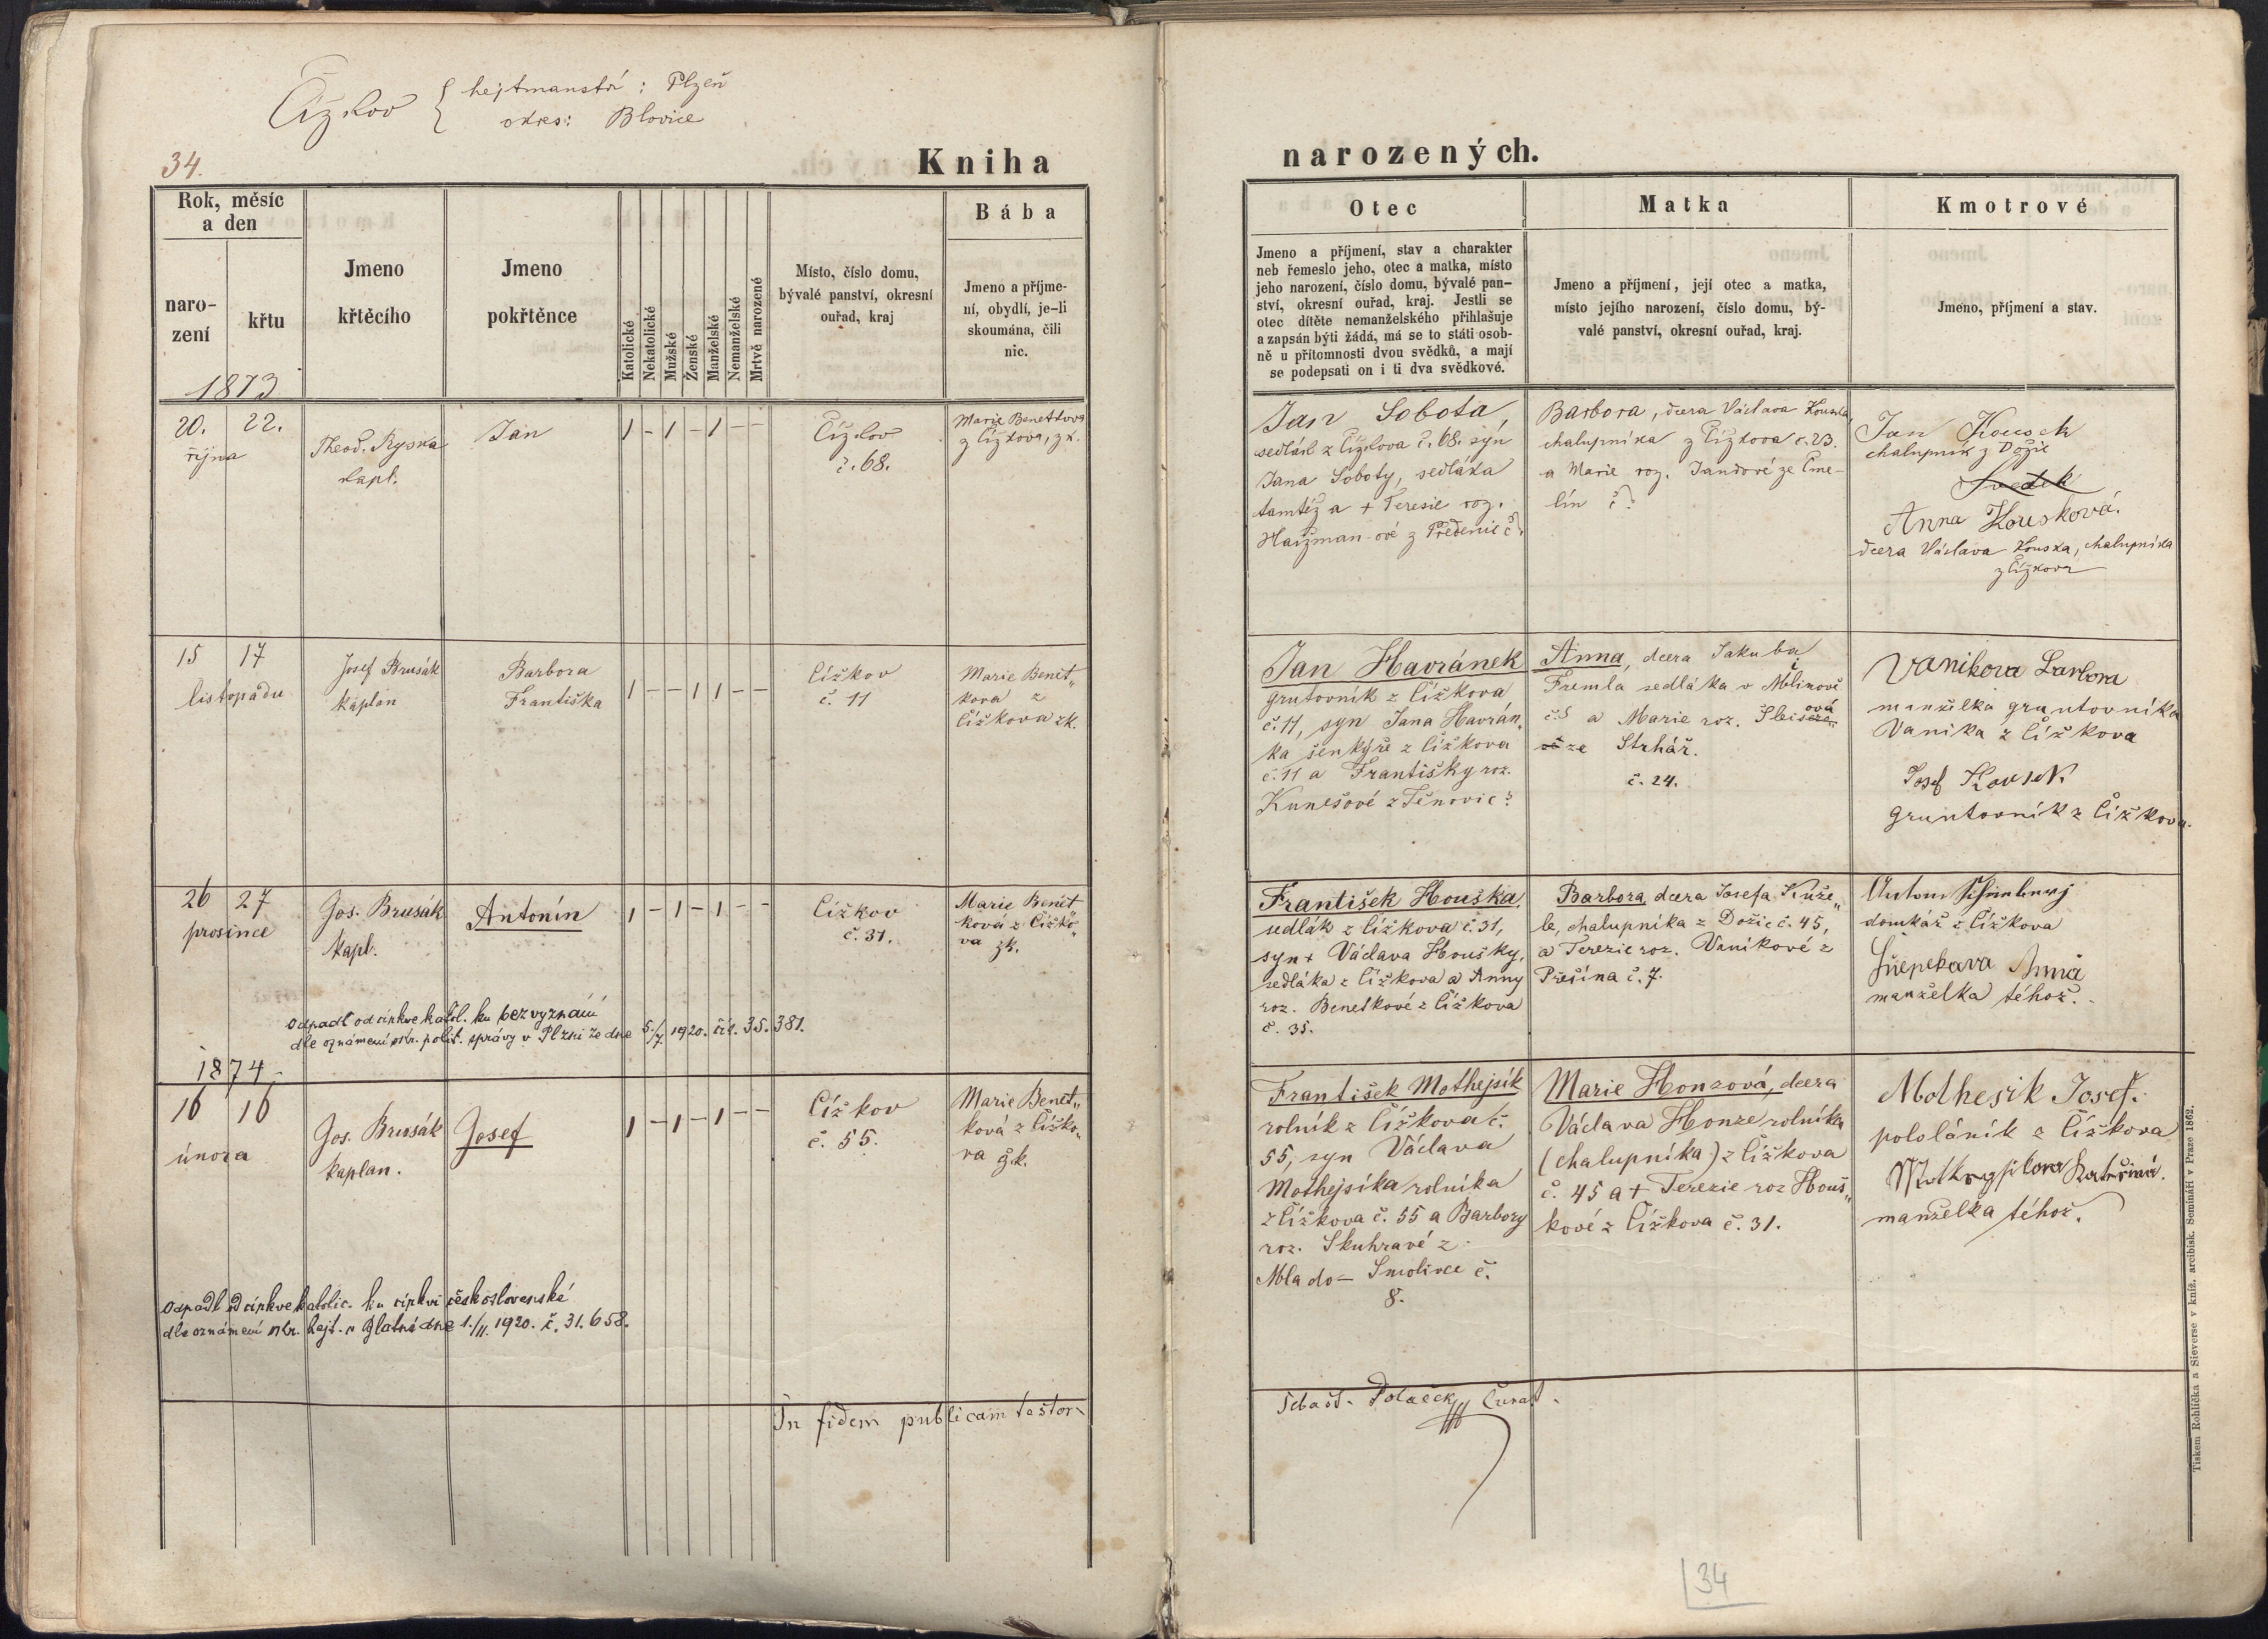 Čížkov { hejtmanství: Plzeň
okres: Blovice
34.
Kniha
narozených.
Rok, měsíc
a den
naro-
zení
křtu
1873
Jmeno
křtěcího
Jmeno
pokřtěnce
Katolické
Nekatolické
Mužské
Ženské
Manželské
Nemanželské
Mrtvě narozené
Místo, číslo domu,
bývalé panství, okresní
ouřad, kraj
Bába
Jmeno a příjme-
ní, obydlí, je-li
skoumána, čili
nic.
Otec
Jmeno a příjmení, stav a charakter
neb řemeslo jeho, otec a matka, místo
jeho narození, číslo domu, bývalé pan-
ství, okresní ouřad, kraj. Jestli se
otec dítěte nemanželského přihlašuje
a zapsán býti žádá, má se to státi osob-
ně u přítomnosti dvou svědků, a mají
se podepsati on i ti dva svědkové.
Matka
Jmeno a příjmení, její otec a matka,
místo jejího narození, číslo domu, bý-
valé panství, okresní ouřad, kraj.
Kmotrové
Jmeno, příjmení a stav.
20. 22.
října
Theod. Ryska
kapl.
Jan
1 - 1 - 1 - -
Čížkov
č. 68.
Marie Benetkova
z Čížkova, zk.
Jan Sobota,
sedlák z Čížkova č. 68. syn
Jana Soboty, sedláka
tamtéž a + Teresie roz.
Haizman-ové z Předenic č?
Barbora, dcera Václava Kouska,
chalupníka z Čížkova č. 23.
a Marie roz. Jandové ze Čme-
lín č?
Jan Kousek
chalupník z Dožic
Svědek
Anna Kousková.
dcera Václava Kouska, chalupníka
z Čížkova
15 17
listopadu
Josef Brusák
kaplan
Barbora
Františka
1 - - 1 1 - -
Čížkov
č. 11
Marie Benet„
kova z
Čížkova zk.
Jan Havránek
gruntovník z Čížkova
č. 11, syn Jana Havrán„
ka šenkýře z Čížkova
č. 11 a Františky roz.
Kunešové z Těnovic?
Anna, dcera Jakuba
Fremla sedláka v Mlinově
č. 5 a Marie roz.
ze Strhář.
č. 24.
Vanikova Barbora
manželka gruntovníka
Vanika z Čížkova
Josef Kousek
gruntovník z Čížkova.
26 27
prosince
Jos. Brusák
kapl.
Antonín
1 - 1 - 1 - -
Čížkov
č. 31.
Marie Benet
ková z Čížko„
va zk.
František Houška,
sedlák z Čížkova č. 31,
syn + Václava Houšky,
sedláka z Čížkova a Anny
roz. Benetkové z Čížkova
č. 35.
Barbora dcera Josefa Kuže„
le, chalupníka z Dožic č. 45,
a Terezie roz. Vaníkové z
Přešína č. 7.
domkář z Čížkova
Anna
manželka téhož.
Odpadl od církve katol. ku bezvyznání
dle oznámení okr. polit. správy v Plzni ze dne 5./7. 1920. čís. 35.381.
1874.
16 16
února
Jos. Brusák
kaplan.
Josef
1 - 1 - 1 - -
Čížkov
č. 55.
Marie Benet„
ková z Čížko„
va zk.
František Mothejsík
rolník z Čížkova č.
55, syn Václava
Mothejsíka rolníka
z Čížkova č. 55 a Barbory
roz. Skuhravé z
Mlado- Smolivce č.
8.
Marie Honzová, dcera
Václava Honze rolníka
(chalupníka) z Čížkova
č. 45 a + Terezie roz Houš„
kové z Čížkova č. 31.
Mothesik Josef.
pololáník z Čížkova
Kateřina.
manželka téhož.
Odpadl od církve katolic. ku církvi československé
dle oznámení okr. hejt. v Blatné dne 1./11. 1920. č. 31.658.
In fidem publicam testor
Šebast. Polaček Curat.
Tiskem Rohlíčka a Sieverse v kníž. arcibisk. Semináři v Praze 1862.
34